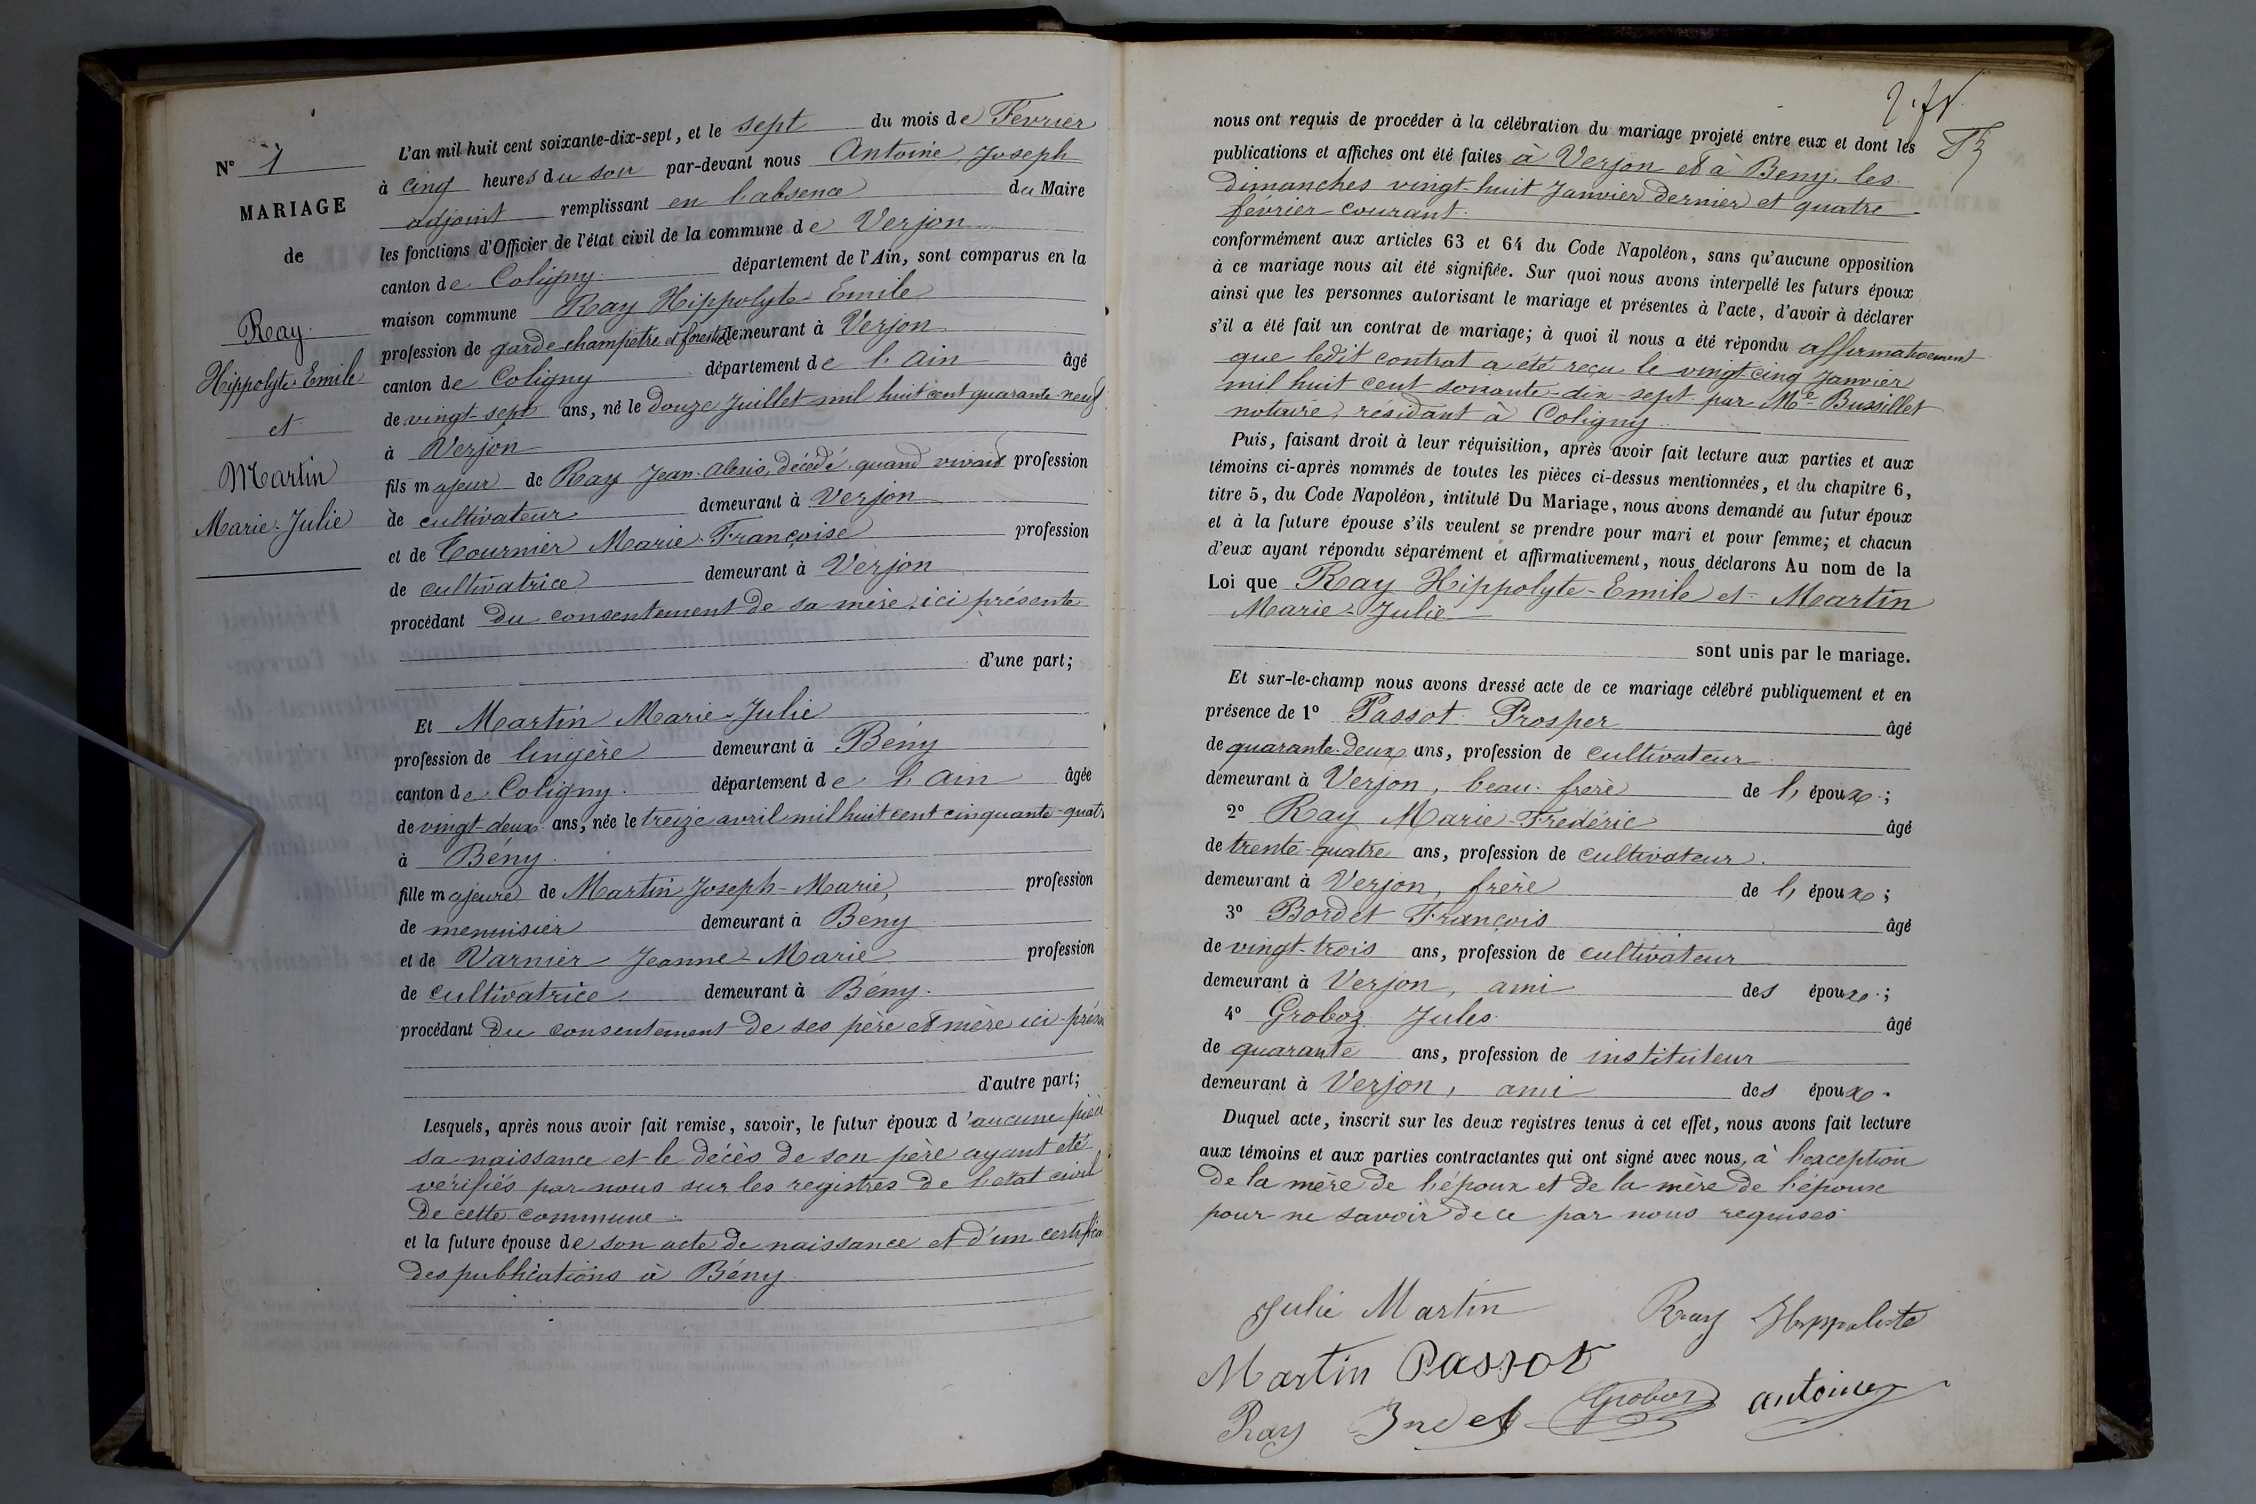 N° 1
MARIAGE
de
Ray
Hippolyte-Emile
et
Martin
Marie-Julie
L'an mil huit cent soixante-dix-sept, et le sept du mois de Février
à cinq heures du soir par-devant nous Antoine Joseph
adjoint remplissant en l'absence du Maire
les fonctions d'Officier de l'état civil de la commune de Verjon
canton de Coligny département de l'Ain, sont comparus en la
maison commune Ray Hippolyte-Emile
profession de garde-champêtre et forestier demeurant à Verjon
canton de Coligny département de l'Ain âgé
de vingt-sept ans, né le douze Juillet mil huit cent quarante-neuf
à Verjon
fils majeur de Ray Jean-Alexis, décédé, quand vivait profession
de cultivateur demeurant à Verjon
et de Tournier Marie-Françoise profession
de cultivatrice demeurant à Verjon
procédant du consentement de sa mère, ici présente
d'une part;
Et Martin Marie-Julie
profession de lingère demeurant à Bény
canton de Coligny département de l'Ain âgée
de vingt-deux ans, née le treize avril mil huit cent cinquante-quatr
à Bény
fille majeure de Martin Joseph-Marie, profession
de menuisier demeurant à Beny
et de Varnier Jeanne-Marie profession
de cultivatrice demeurant à Bény.
procédant du consentement de ses père et mère ici-prése
d'autre part;
Lesquels, après nous avoir fait remise, savoir, le futur époux d'aucune pièce
sa naissance et le décès de son père ayant eté
vérifiés par nous sur les registres de l'état civil
de cette commune.
et la future épouse de son acte de naissance et d'un certifica
des publications à Bény
nous ont requis de procéder à la célébration du mariage projeté entre eux et dont les
publications et affiches ont été faites à Verjon et à Beny, les
dimanches vingt-huit Janvier dernier et quatre
février courant.
conformément aux articles 63 et 64 du Code Napoléon, sans qu'aucune opposition
à ce mariage nous ait été signifiée. Sur quoi nous avons interpellé les futurs époux
ainsi que les personnes autorisant le mariage et présentes à l'acte, d'avoir à déclarer
s'il a été fait un contrat de mariage; à quoi il nous a été répondu affirmativement
que ledit contrat a été reçu le vingt-cinq Janvier
mil huit cent soixante-dix-sept par Me Bussillet
notaire, résidant à Coligny.
Puis, faisant droit à leur réquisition, après avoir fait lecture aux parties et aux
témoins ci-après nommés de toutes les pièces ci-dessus mentionnées, et du chapitre 6,
titre 5, du Code Napoléon, intitulé Du Mariage, nous avons demandé au futur époux
et à la future épouse s'ils veulent se prendre pour mari et pour femme; et chacun
d'eux ayant répondu séparément et affirmativement, nous déclarons Au nom de la
Loi que Ray Hippolyte-Emile et Martin
Marie-Julie
sont unis par le mariage.
Et sur-le-champ nous avons dressé acte de ce mariage célébré publiquement et en
présence de 1° Passot Prosper âgé
de quarante-deux ans, profession de cultivateur
demeurant à Verjon, beau-frère de l' époux;
2° Ray Marie-Frédéric âgé
de trente-quatre ans, profession de cultivateur.
demeurant à Verjon, frère de l' époux;
3° Bordet François âgé
de vingt-trois ans, profession de cultivateur
demeurant à Verjon, ami des époux;
4° Groboz Jules âgé
de quarante ans, profession de instituteur
demeurant à Verjon, ami des époux.
Duquel acte, inscrit sur les deux registres tenus à cet effet, nous avons fait lecture
aux témoins et aux parties contractantes qui ont signé avec nous, à l'exception
de la mère de l'époux et de la mère de l'épouse
pour ne savoir de ce par nous requises
Julie Martin Ray Hippolite
Martin Passot
Ray Groboz antoine